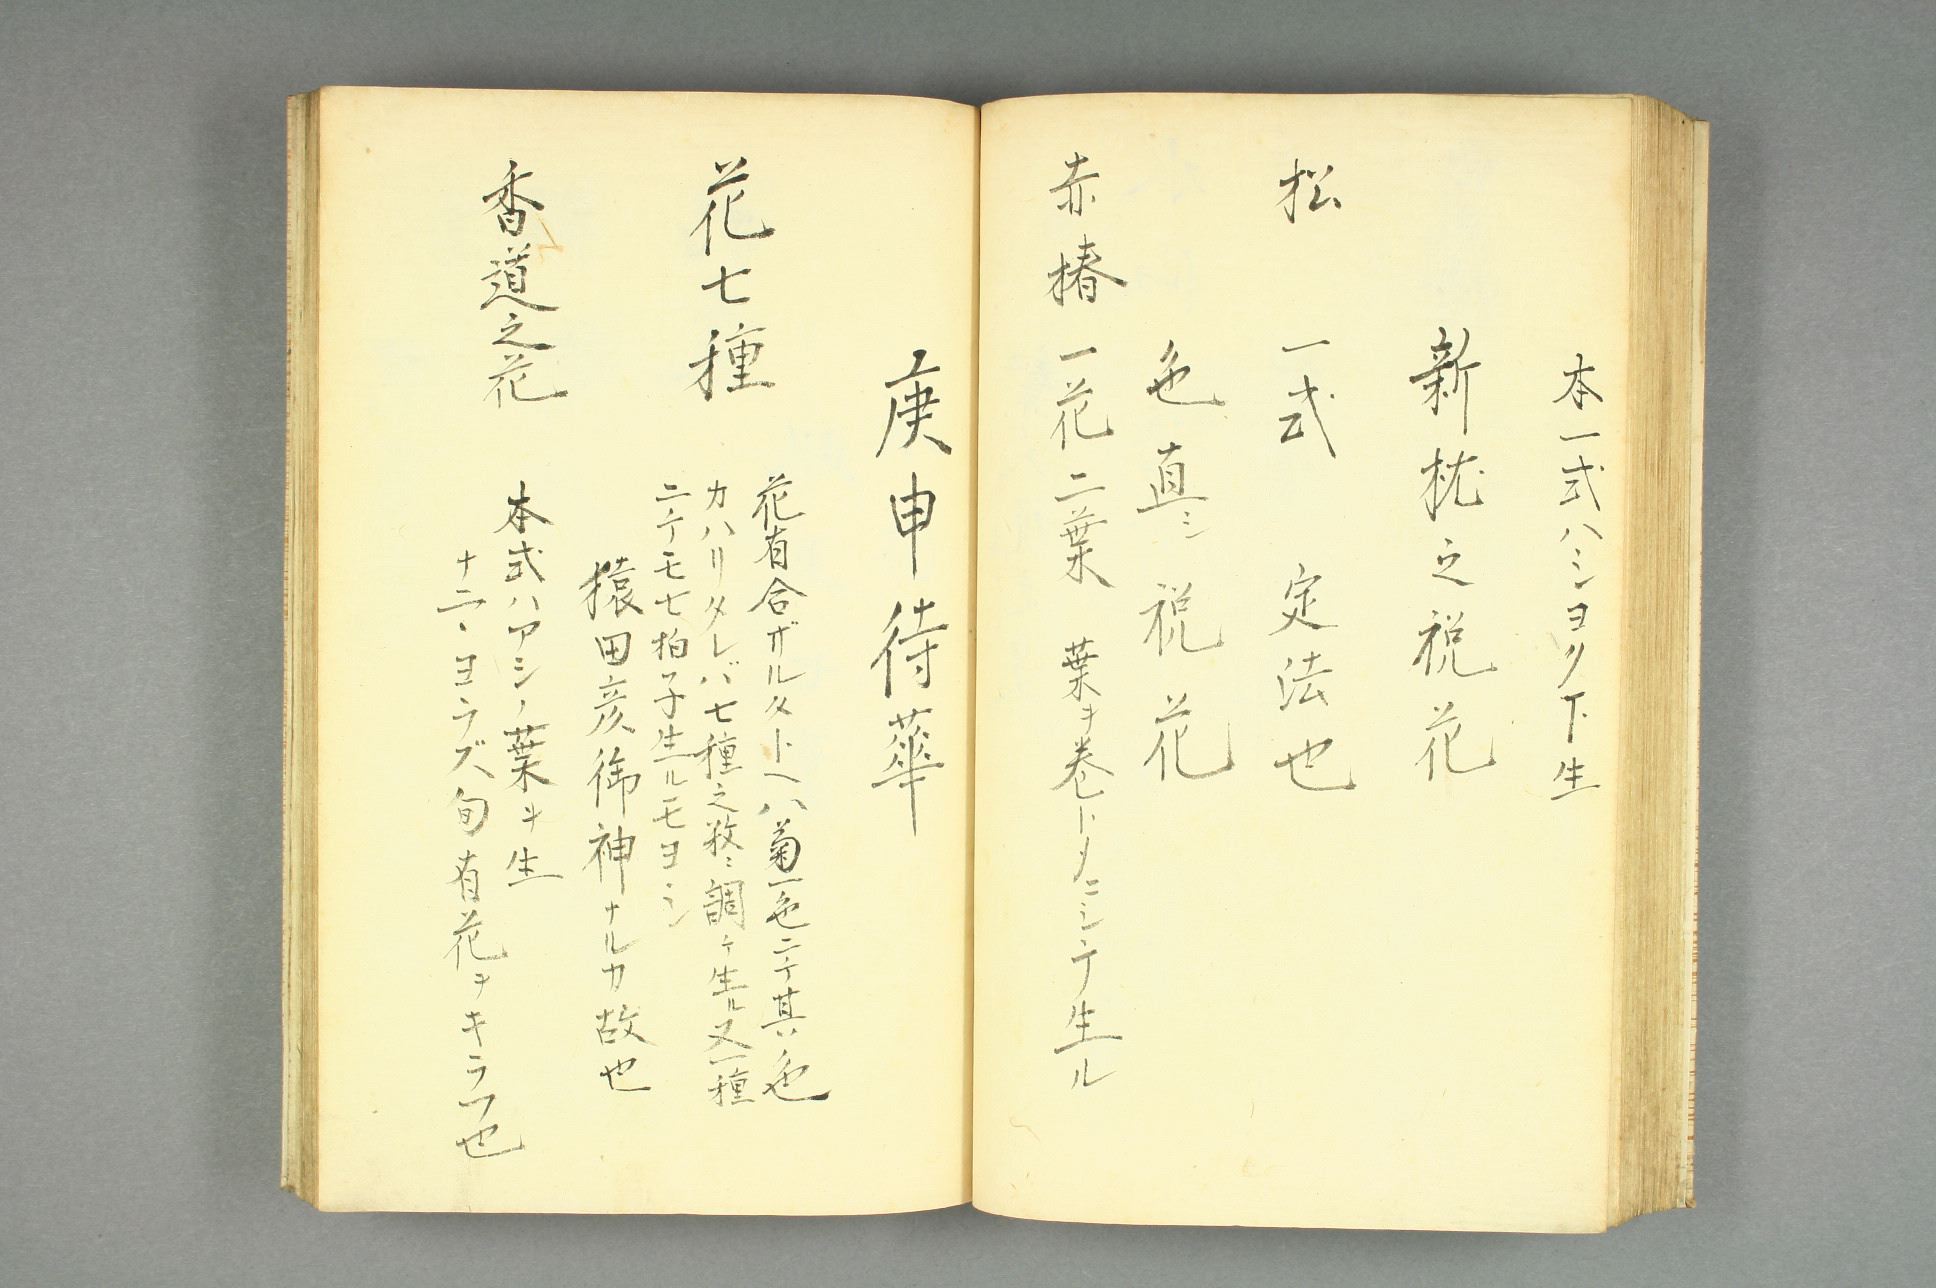 本一式ハシヨリ下生
新枕之祝花
松　一式　定法也
色直シ祝花
赤椿一花二葉　葉ヲ巻トメニシテ生ル
庚申待華
花七種
花有合ザルタトヘハ菊一色ニテ其ハ色
カハリタレバ七種之数ニ調テ生ル又一種
ニテモ七拍子生ルモヨシ
猿田彦御神ナルカ故也
香道之花
本式ハアシノ葉ヲ生
ナニヽヨラズ匂有花ヲキラフ也